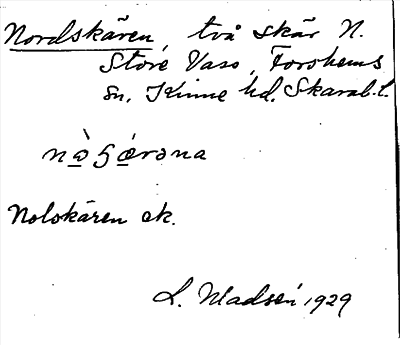 Nordskären, två skär N.
Store Vass, Forshems
sn, Kinne hd. Skarab. l.
Nolskären ek.
L. Madsén 1929